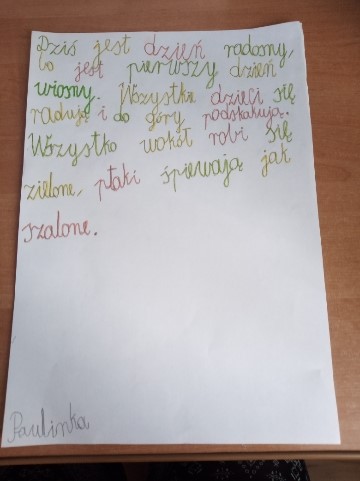 Dziś jest dzień radosny,
bo jest pierwszy dzień
wiosny. Wszystkie dzieci się
radują i do góry podskakują.
Wszystko wokół robi się
zielone, ptaki śpiewają jak
szalone.
Paulinka